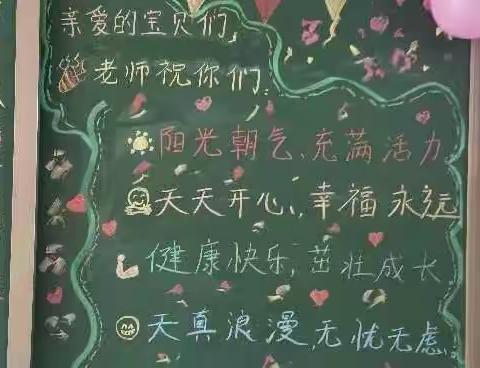 亲爱的宝贝们,
老师祝你们:
阳光朝气、充满活力
天天开心、幸福永远
健康快乐,茁壮成长
天真浪漫,无忧无虑.